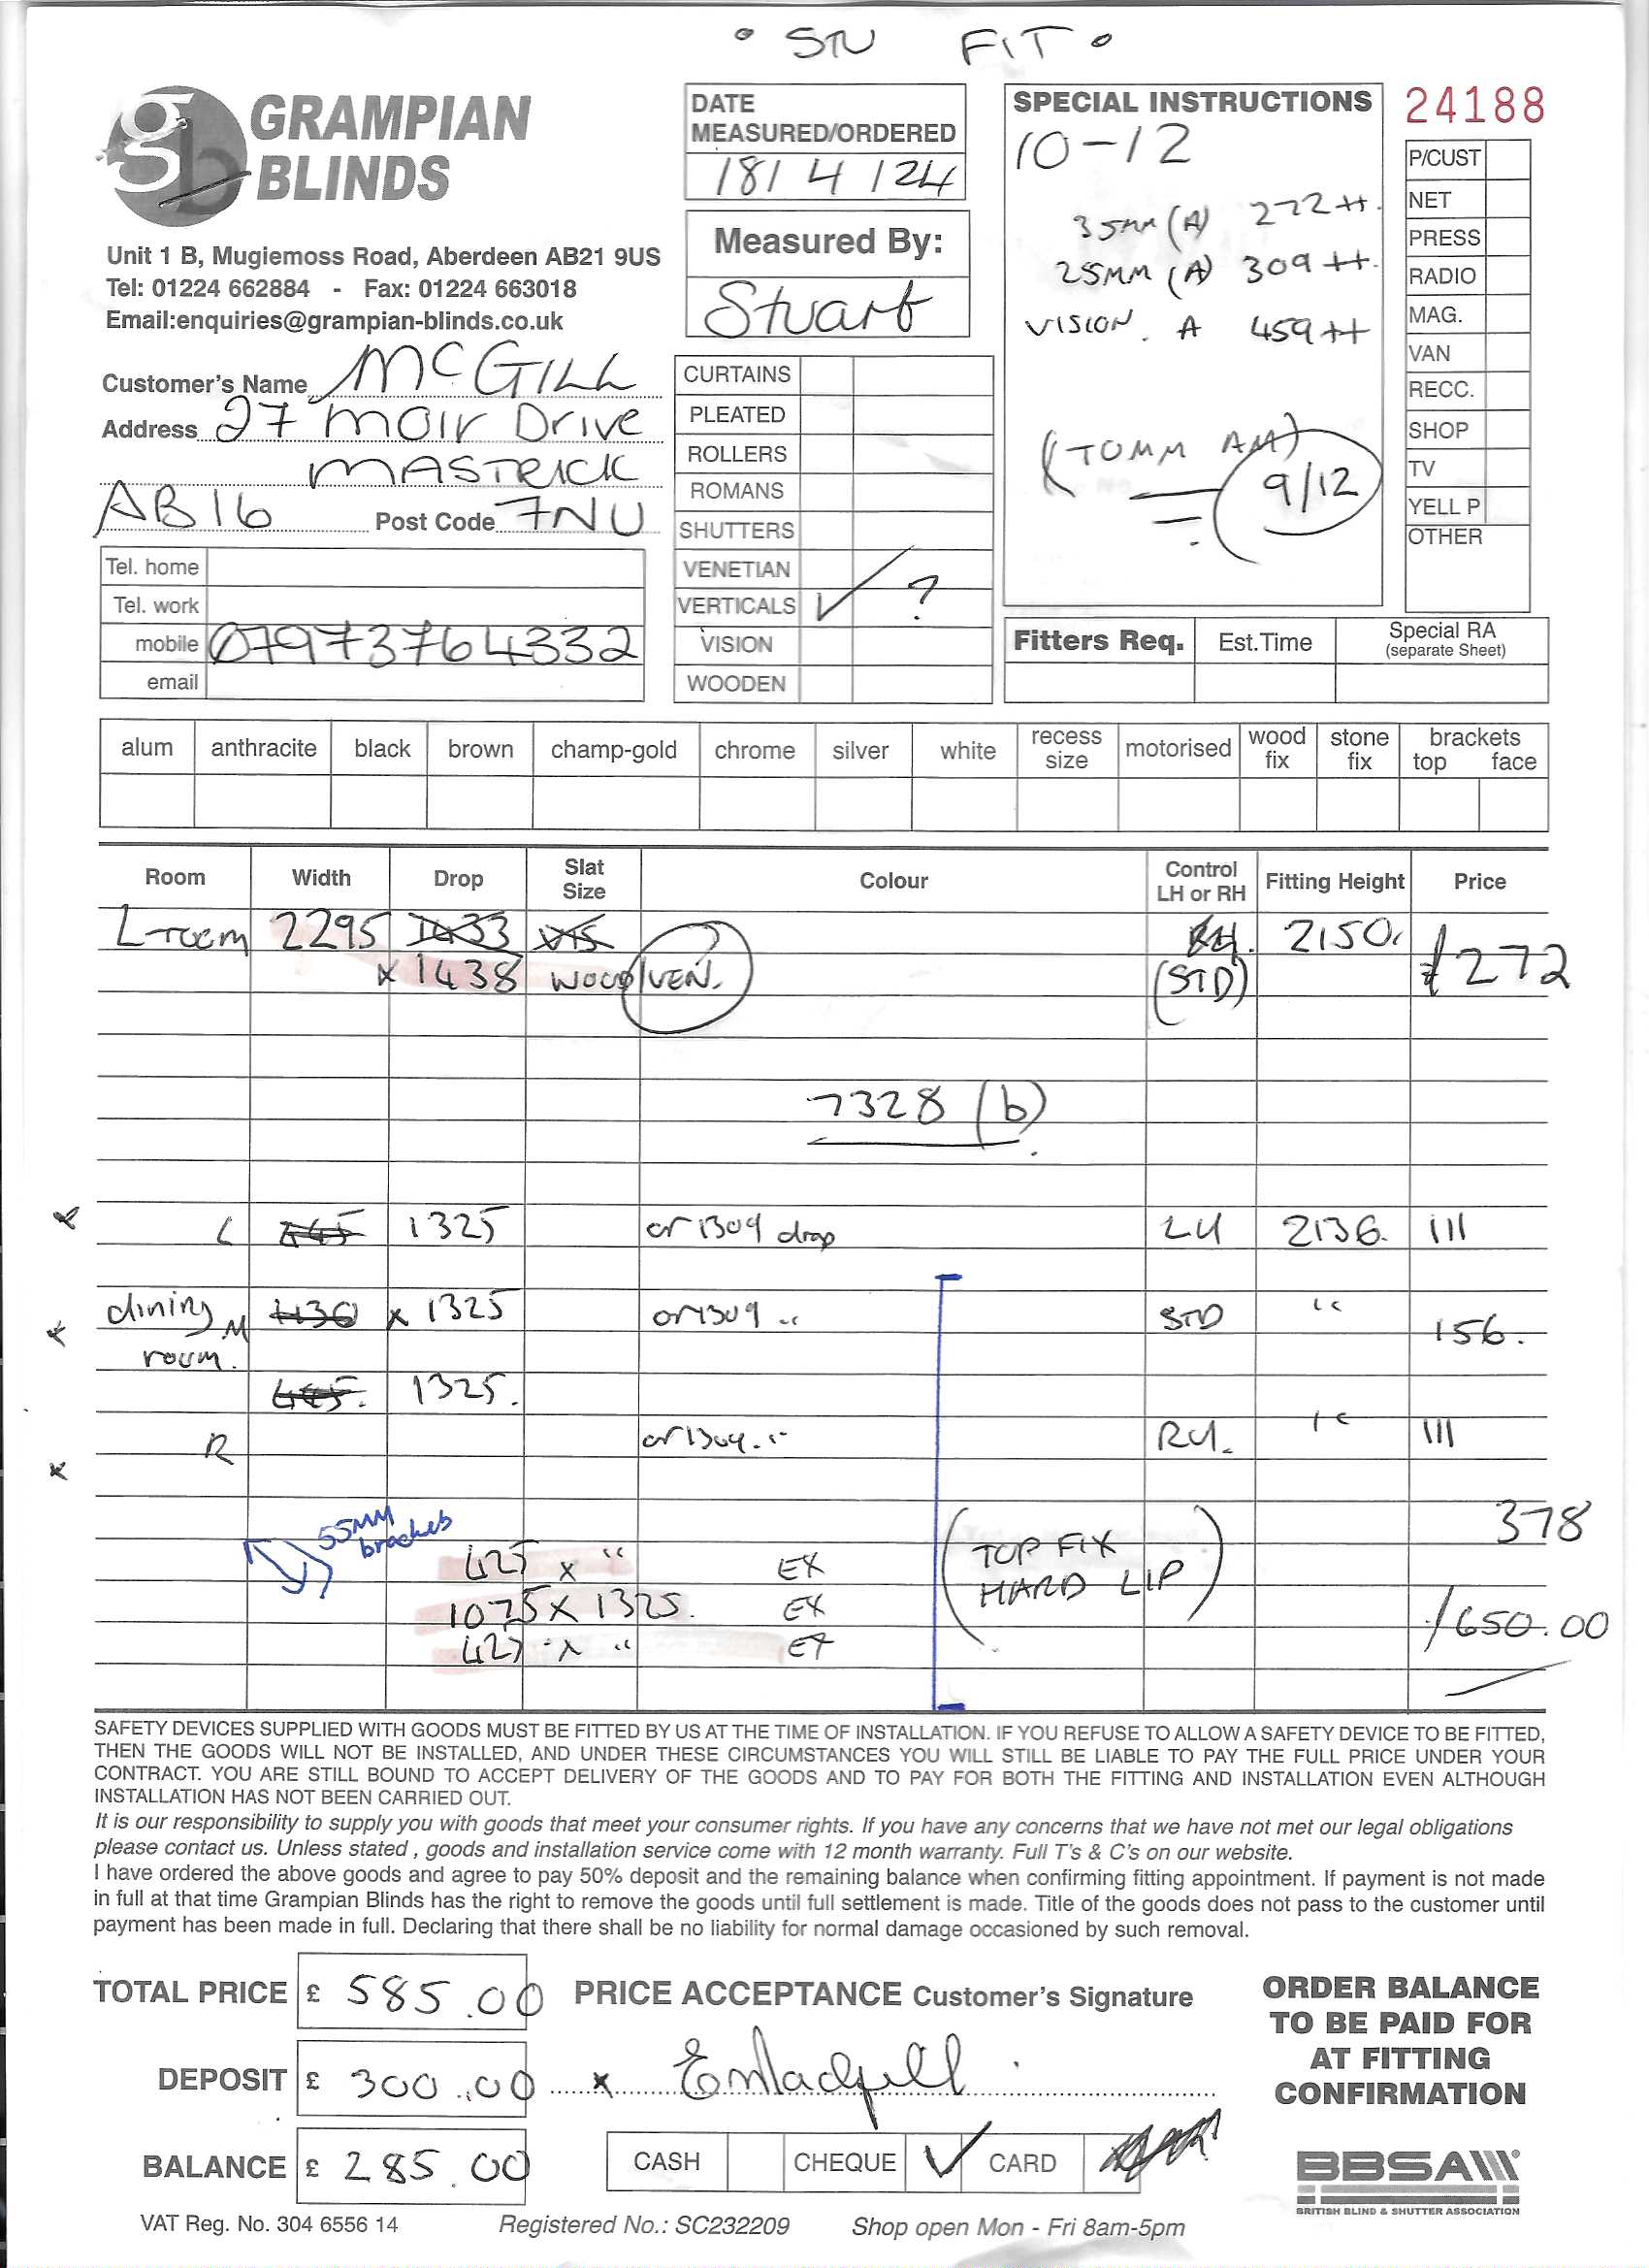 • STU FIT •
GRAMPIAN
BLINDS
Unit 1 B, Mugiemoss Road, Aberdeen AB21 9US
Tel: 01224 662884 - Fax: 01224 663018
Email:enquiries@grampian-blinds.co.uk
Customer's Name McGILL
Address 27 Moir Drive
MASTRICK
AB16 Post Code 7NU
Tel. home
Tel. work
mobile 07973764332
email
DATE
MEASURED/ORDERED
18/4/24
Measured By:
Stuart
CURTAINS
PLEATED
ROLLERS
ROMANS
SHUTTERS
VENETIAN
VERTICALS ✓ ?
VISION
WOODEN
SPECIAL INSTRUCTIONS
10-12
35MM (A) 272
25MM (A) 309
VISION. A 459
(TOMM AM)
9/12
24188
P/CUST
NET
PRESS
RADIO
MAG.
VAN
RECC.
SHOP
TV
YELL P
OTHER
Fitters Req. Est.Time Special RA
(separate Sheet)
alum anthracite black brown champ-gold chrome silver white recess size motorised wood fix stone fix brackets top face
Room Width Drop Slat Size Colour Control LH or RH Fitting Height Price
L-room 2295 1433 VIS RH. 2150. £272
x 1438 WOOD VEN. (STD)
7328 (b)
L 445 1325 or 1309 drop LH 2136. 111
dining M 1130 x 1325 or 1309 " STD " 156.
room.
445. 1325.
R or 1309. " RH. " 111
378
55MM
brackets
427 x " EX (TOP FIX
1075 x 1325. EX HARD LIP)
427 x " EX
650.00
SAFETY DEVICES SUPPLIED WITH GOODS MUST BE FITTED BY US AT THE TIME OF INSTALLATION. IF YOU REFUSE TO ALLOW A SAFETY DEVICE TO BE FITTED,
THEN THE GOODS WILL NOT BE INSTALLED, AND UNDER THESE CIRCUMSTANCES YOU WILL STILL BE LIABLE TO PAY THE FULL PRICE UNDER YOUR
CONTRACT. YOU ARE STILL BOUND TO ACCEPT DELIVERY OF THE GOODS AND TO PAY FOR BOTH THE FITTING AND INSTALLATION EVEN ALTHOUGH
INSTALLATION HAS NOT BEEN CARRIED OUT.
It is our responsibility to supply you with goods that meet your consumer rights. If you have any concerns that we have not met our legal obligations
please contact us. Unless stated , goods and installation service come with 12 month warranty. Full T's & C's on our website.
I have ordered the above goods and agree to pay 50% deposit and the remaining balance when confirming fitting appointment. If payment is not made
in full at that time Grampian Blinds has the right to remove the goods until full settlement is made. Title of the goods does not pass to the customer until
payment has been made in full. Declaring that there shall be no liability for normal damage occasioned by such removal.
TOTAL PRICE £ 585.00 PRICE ACCEPTANCE Customer's Signature
DEPOSIT £ 300.00 x
BALANCE £ 285.00 CASH CHEQUE ✓ CARD
ORDER BALANCE
TO BE PAID FOR
AT FITTING
CONFIRMATION
BBSA
BRITISH BLIND & SHUTTER ASSOCIATION
VAT Reg. No. 304 6556 14 Registered No.: SC232209 Shop open Mon - Fri 8am-5pm